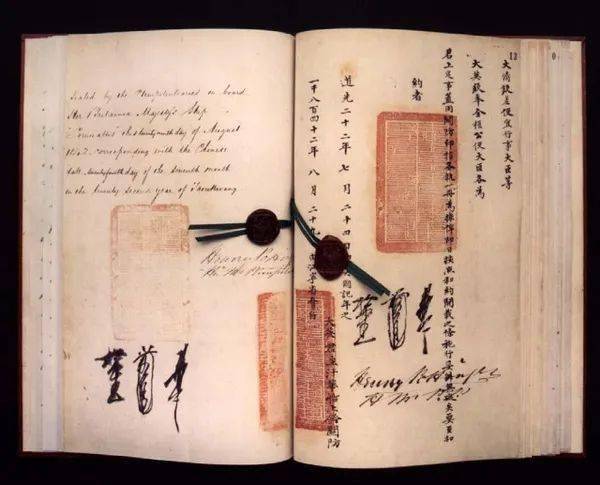 Sealed by the Plenipotentiaries on board
Her Britannic Majesty's Ship
Cornwallis this twenty ninth day of August
1842 corresponding with the Chinese
date, twenty fourth day of the seventh month
in the twenty second year of Taoukwang
Henry Pottinger
13
大清欽差便宜行事大臣等
大英欽奉全權公使大臣各為
君上定事蓋用關防印信各執一冊為據俾即日按照和約開載之條施行妥辦無礙矣要至和
約者
道光二十二年七月二十四日即英國記年之
一千八百四十二年八月二十九日由江寧省會行
大英君主汗華船上鈐關防
Henry Pottinger